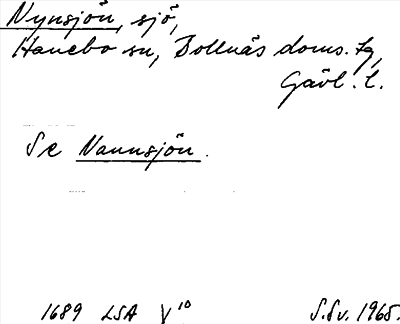 Nynsjön, sjö,
Hanebo sn, Bollnäs doms. tg,
Gävl. l.
Se Nannsjön.
1689 LSA V 10 S.Sv. 1965.